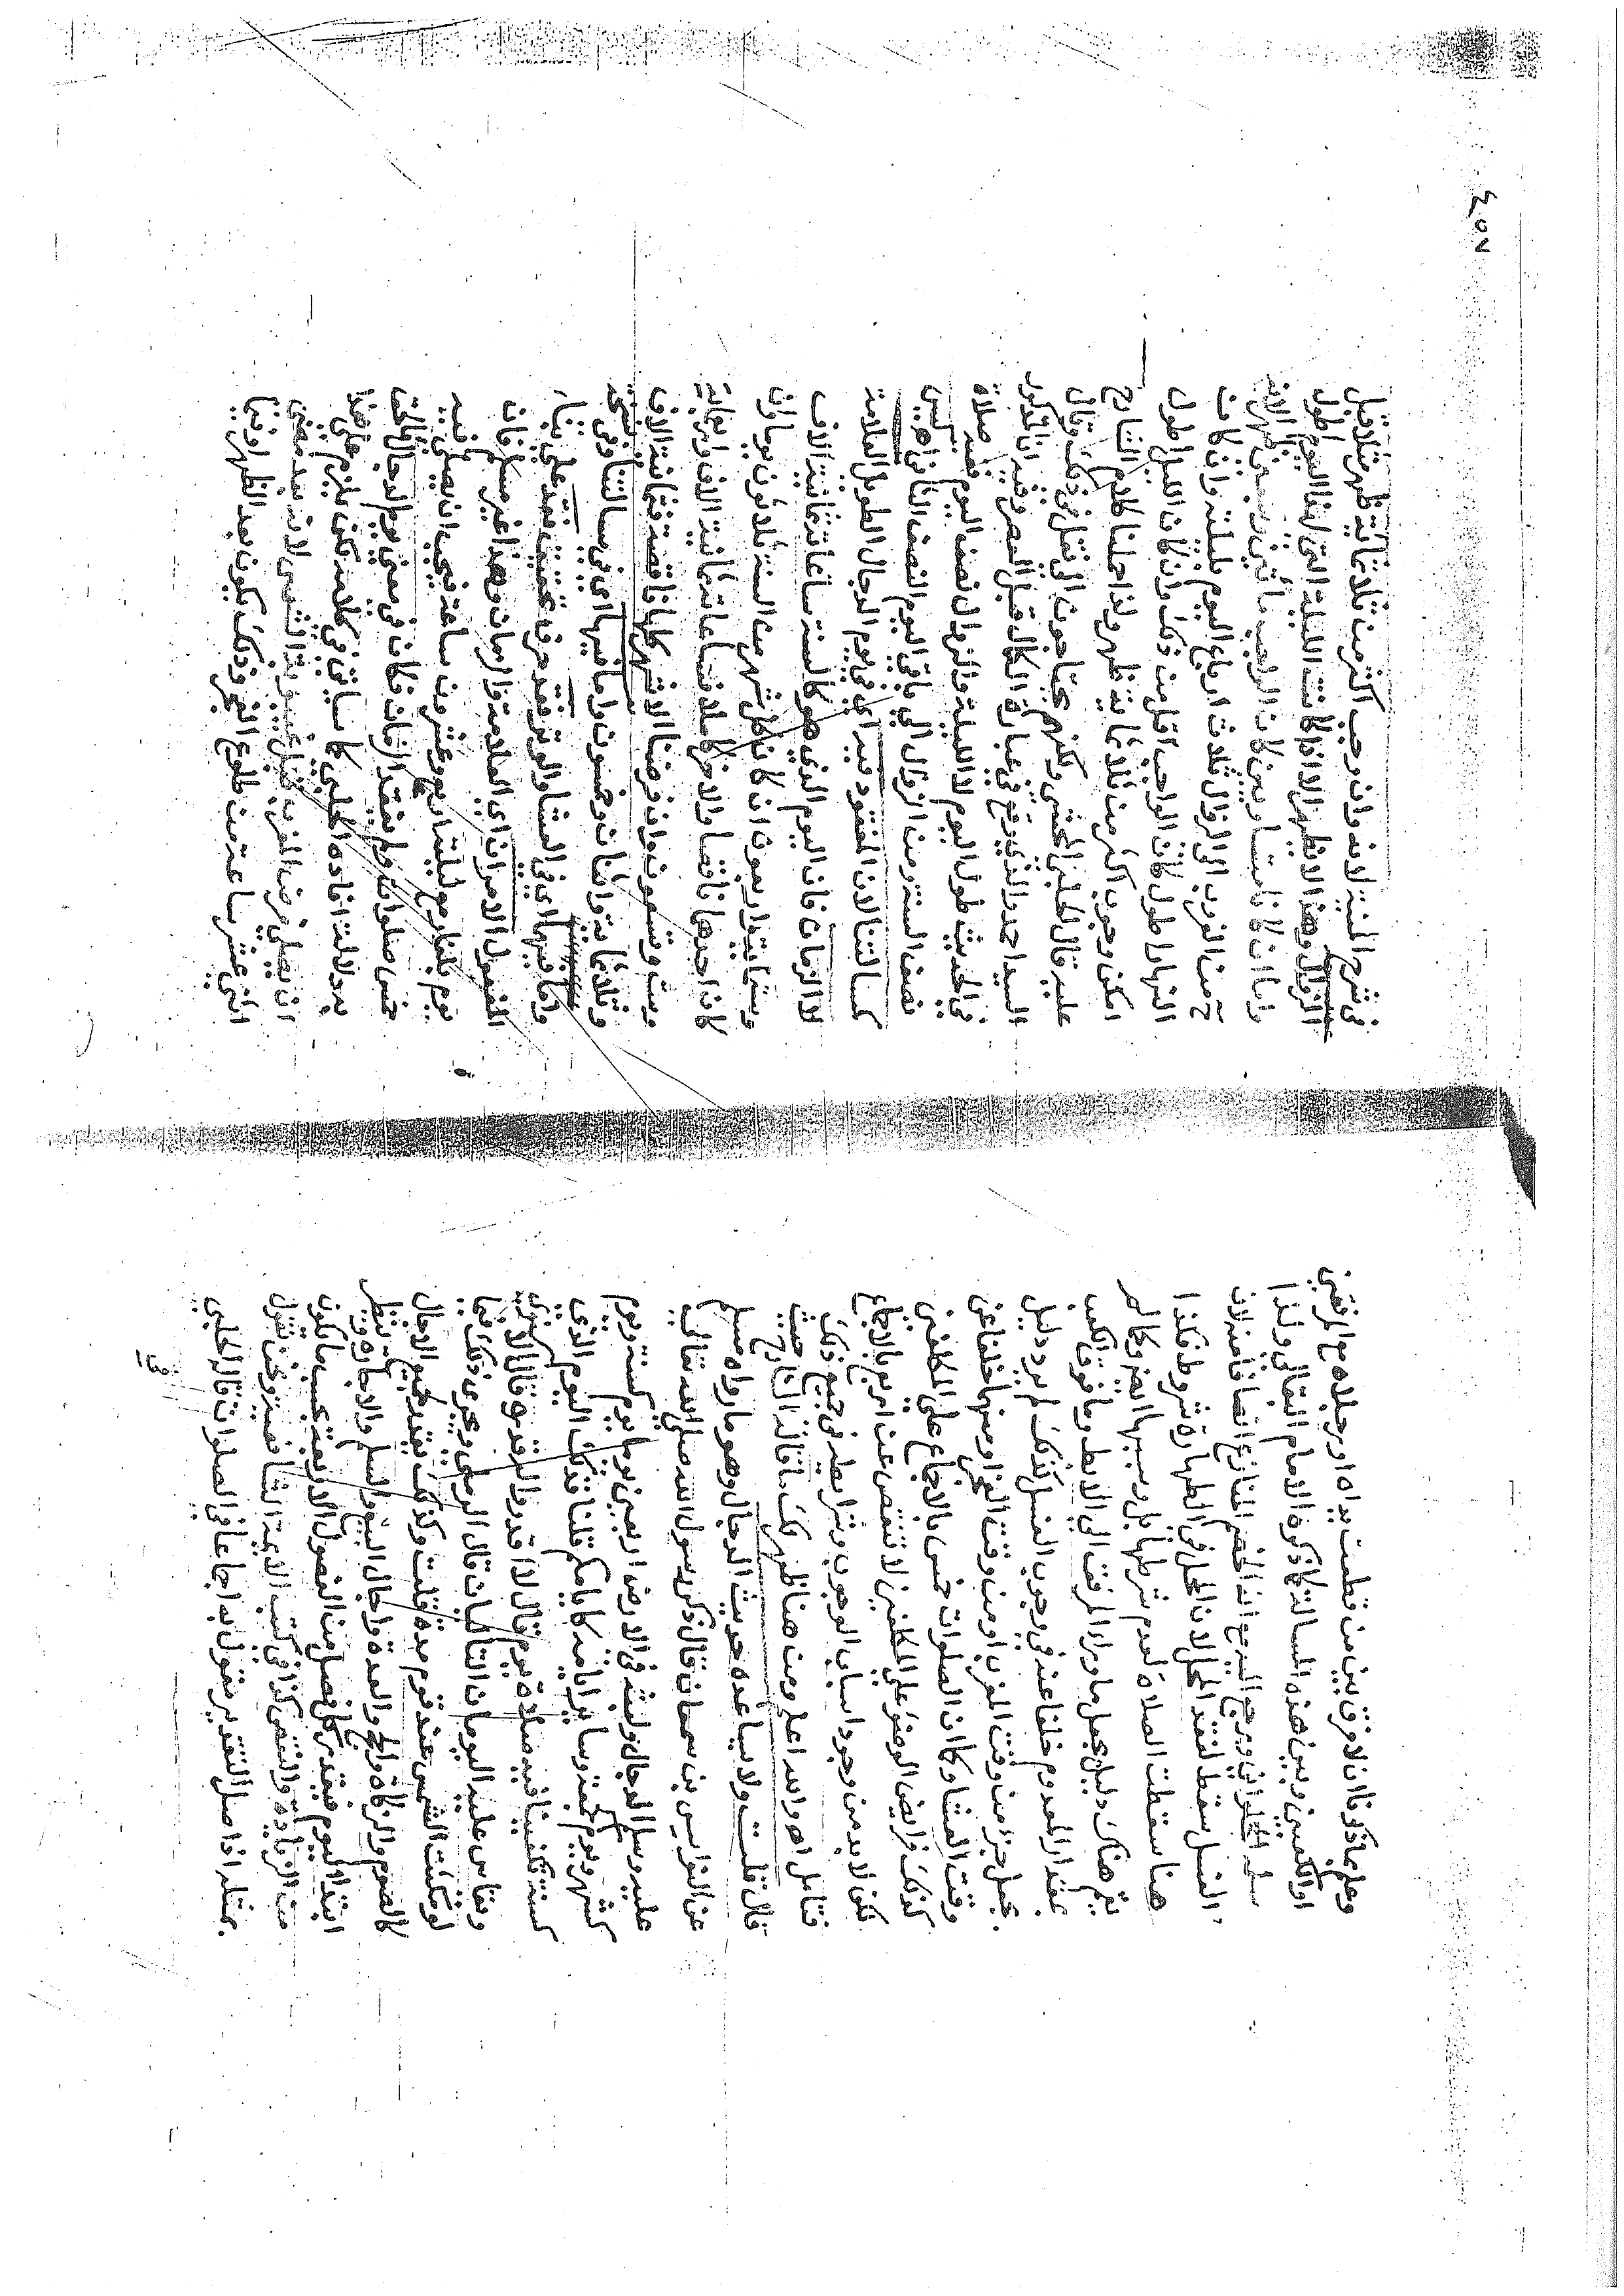 وعلم بما ذكرنا ان لا فرق بين من قطعت يداه او رجلاه مع المرفقين
او الكعبين وبين هذه المسالة كما ذكره الامام البقالي ولذا
سلم الحلواني ورجع اليه مع انه الخصم المنازع انصافا منه لان
الغسل سقط لفقد المحل لان المحل في الطهارة شروط فكذا
هنا سقطت الصلاة لعدم شرطها بل وسببها ايضا وكما لم
يقم هناك دليل يجعل ما وراء المرفق الى الابط وما فوق الكعب
بمقدار المعدوم خلفا عنه في وجوب الغسل كذلك لم يرد دليل
يجعل جزا من وقت المغرب او من وقت الفجر او منهما خلفا عن
وقت العشا وكما ان الصلوات خمس بالاجماع على المكلفين
كذلك فرايض الوضوء على المكلفين لا تنقص عن اربع بالاجماع
لكن لابد من وجود اسباب الوجوب وشرايطه في جميع ذلك
فتامل اه والله اعلم ومن هنا ظهر لك ما قاله الشارح حيث
قال قلت ولا يساعده حديث الدجال وهو ما رواه مسلم
عن النواس بن سمعان قال ذكر رسول الله صلى الله تعالى
عليه وسلم الدجال ولبثه في الارض اربعين يوما يوم كسنة ويوم
كشهر ويوم كجمعة وساير ايامه كايامكم قلنا فذلك اليوم الذي
كسنة تكفينا فيه صلاة يوم قال لا اقدروا له قدره قال الاسنوي
ويقاس عليه اليومان التاليان قال الرملي ويجري ذلك فيما
لو مكثت الشمس عند قوم مدة قلت وكذلك يقدر لجميع الاجال
كالصوم والزكاة والحج والعدة واجال البيع والسلم والاجارة وينظر
ابتدا اليوم فيقدر كل فصل من الفصول الاربعة بحسب ما يكون
من الزيادة والنقص كذا في كتب الائمة الشافعية ونحن نقول
بمثله اذ اصل التقدير مقول به اجماعا في الصلوات قال الحلبي
في
٤٥٧
في شرح المنية لانه وان وجب اكثر من ثلاثمائة ظهر مثلا قبل
الزوال وهذا الا يظهر الا اذا كانت الليلة التي لهذا اليوم اطول
واما ان كانا متساويين كان الواجب مأتين وسبعين ظهرا لانه
ح من الغروب الى الزوال ثلاث ارباع اليوم بليلته وان كان
النهار اطول كان الواجب اقل من ذلك وان كان الليل اطول
امكن وجوب اكثر من ثلاثمائة ظهر ولذا حملنا كلام الشارح
عليه قال الحلبي المحشي ولكنهم يحتاجون الى نقل في ذلك وقال
السيد احمد والذي وقع في عبارة الكمال قبل العصر وفيه ان المذكور
في الحديث طول اليوم لا الليلة والزوال نصف اليوم ففيه صلاة
نصف السنة ومن الزوال الى باقي اليوم النصف الثاني اه ليس
كمسالتنا لان المفقود فيه اي في يوم الدجال الطويل العلامة
لا الزمان فان اليوم الذي هو كالسنة ساعاته ثمانية الاف
وستماية واربعون ان كان كل شهر من السنة ثلاثون يوما وان
كان احدها ناقصا والاخر كاملا فساعاته ثمانية الاف واربعاية
وست وتسعون وان فرضنا الاشهر كلها ناقصة فثمانية الاف
وثلاثمائة واثنان وخمسون واما فيها اي في مسالتنا وهي نسخة
واما فيها اي في العشا والوتر فقد حرف تحقيق فقد على بناء
المفعول الامران اي العلامة والزمان وهذا غير مسلم فان
يوم بلغار مع ليلته اربع وعشرون ساعة فيجب ان يصلي فيه
خمس صلوات ولم يفقد الزمان فكان في معنى يوم الدجال فالحق
بدلالة افاده الحلبي كما سياتي في كلامه لكن يلزم على هذا
ان يصلي فرض المغرب قبل غيبوبة الشمس لانه بعد مضي
اثني عشر ساعة من طلوع الفجر وذلك يكون بعد الظهر اوفيها